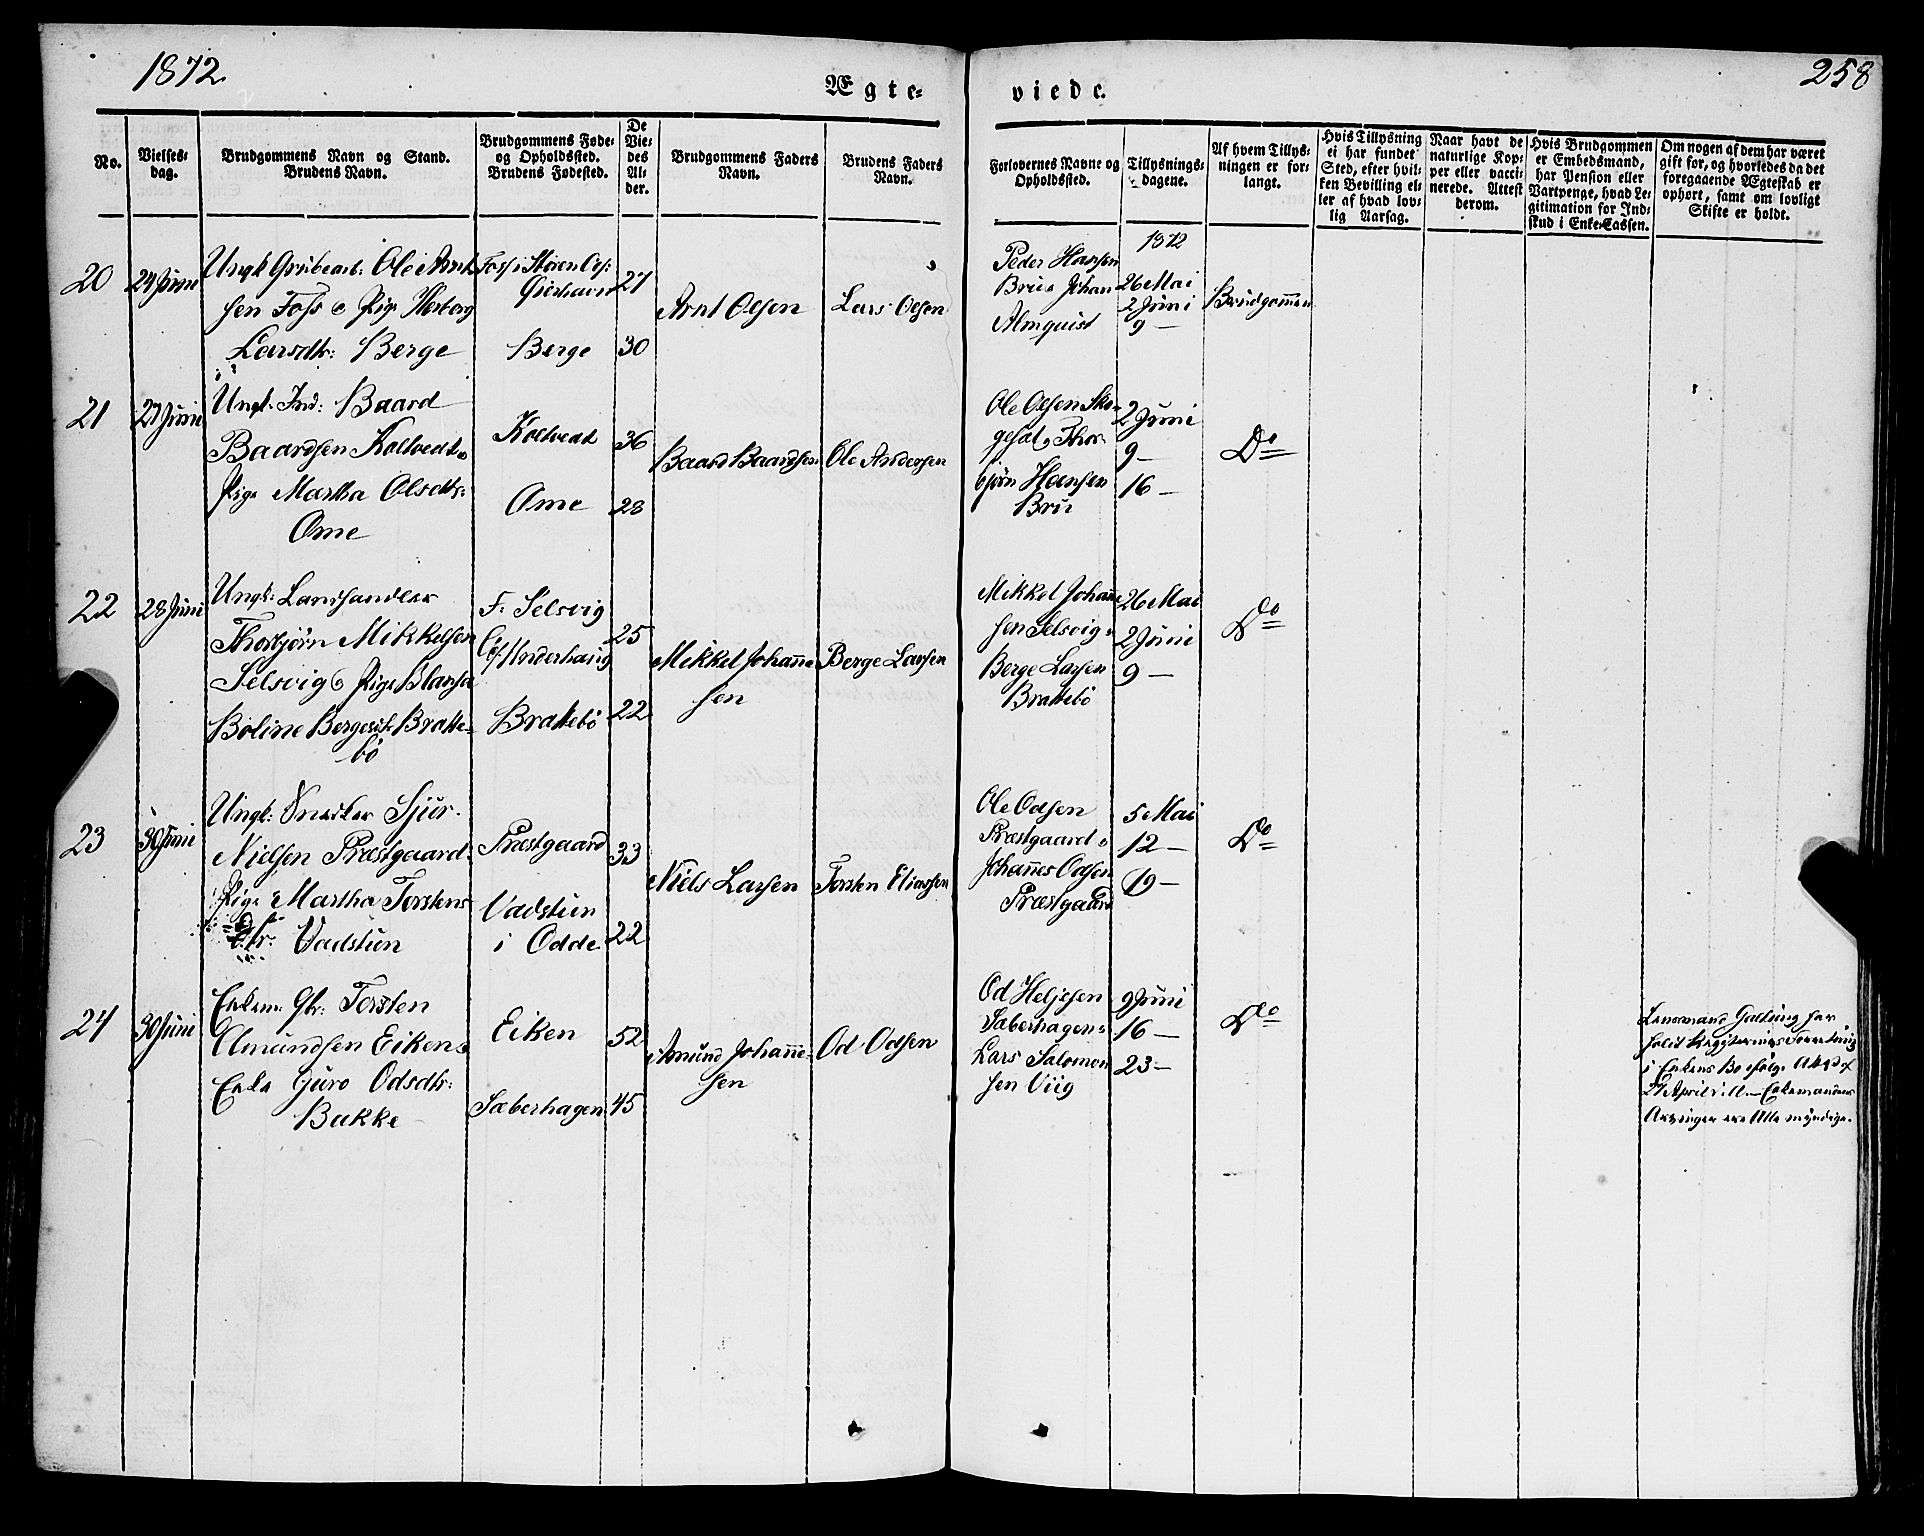 1872
258
Ægte-
viede.
No.
Vielses-
dag.
Brudgommens Navn og Stand.
Brudens Navn.
Brudgommens Føde-
og Opholdssted.
Brudens Fødested.
De
Vie-
des
Al-
der.
Brudgommens Faders
Navn.
Brudens Faders
Navn.
Forlovernes Navne og
Opholdssted.
Tillysnings-
dagene.
Af hvem Tillys-
ningen er for-
langt.
Hvis Tillysning
ei har fundet
Sted, efter hvil-
ken Bevilling el-
ler af hvad lov-
lig Aarsag.
Naar havt de
naturlige Kop-
per eller vacci-
nerede. Attest
derom.
Hvis Brudgommen
er Embedsmand,
har Pension eller
Vartpenge, hvad Le-
gitimation for Ind-
skud i Enke-Cassen.
Om nogen af dem har været
gift før, og hvorledes da det
foregaaende Ægteskab er
ophørt, samt om lovligt
Skifte er holdt.
20
24 Juni
Ungk Grubearb: Ole Arnt
sen Foss & Pige
Larsdtr: Berge
Foss i Støren
Berge
27
30
Arnt Olsen
Lars Olsen
Peder Hansen
Brue Johan
Almquist
1872
26 Mai
2 Juni
9 —
Brudgommen
21
27 Juni
Ungk. Ind: Baard
Baardsen Koltvedt &
Pige Martha Olsdtr:
Ome
Koltvedt
Ome
36
28
Baard Baardsen
Ole Andersen
Ole Olsen Sko-
Thor-
bjørn Hansen
Brue
2 Juni
9 —
16 —
Do
22
28 Juni
Ungk: Landhandler
Thorbjørn Mikkelsen
Selsvig & Pige
Boline Bergesdtr Bratte-
bö
F: Selsvig
O: Underhaug
Brattebö
25
22
Mikkel Johanne
sen
Berge Larsen
Mikkel Johanne
sen Selsvig &
Berge Larsen
Brattebö
26 Mai
2 Juni
9 —
Do
23
30 Juni
Ungk: Snedker Sjur
Nielsen Præstgaard
Pige Martha Torstens
dtr: Vadstun
Præstgaard
Vadstun
i Odde
33
22
Niels Larsen
Torsten Eliassen
Ole Odsen
Præstgaard &
Johannes Odsen
Præstgaard
5 Mai
12 —
19 —
Do
24
30 Juni
Enkem: Gbr: Torsten
Amundsen Eiken &
Enke Guro Odsdtr:
Bakke
Eiken
Sæberhagen
52
45
Amund Johanne-
sen
Od Odsen
Od Heljesen
Sæberhagen &
Lars Salomon
sen Viig
9 Juni
16 —
23 —
Do
Lensmand Galtung har
holdt Registreringsforretning
i Enkens Bo ifølge Attest
27 April d. A. — Enkemandens
Arvinger ere Alle myndige.